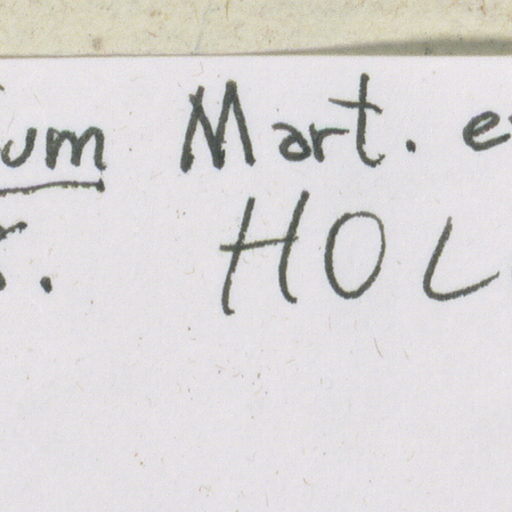 um Mart.
HOL